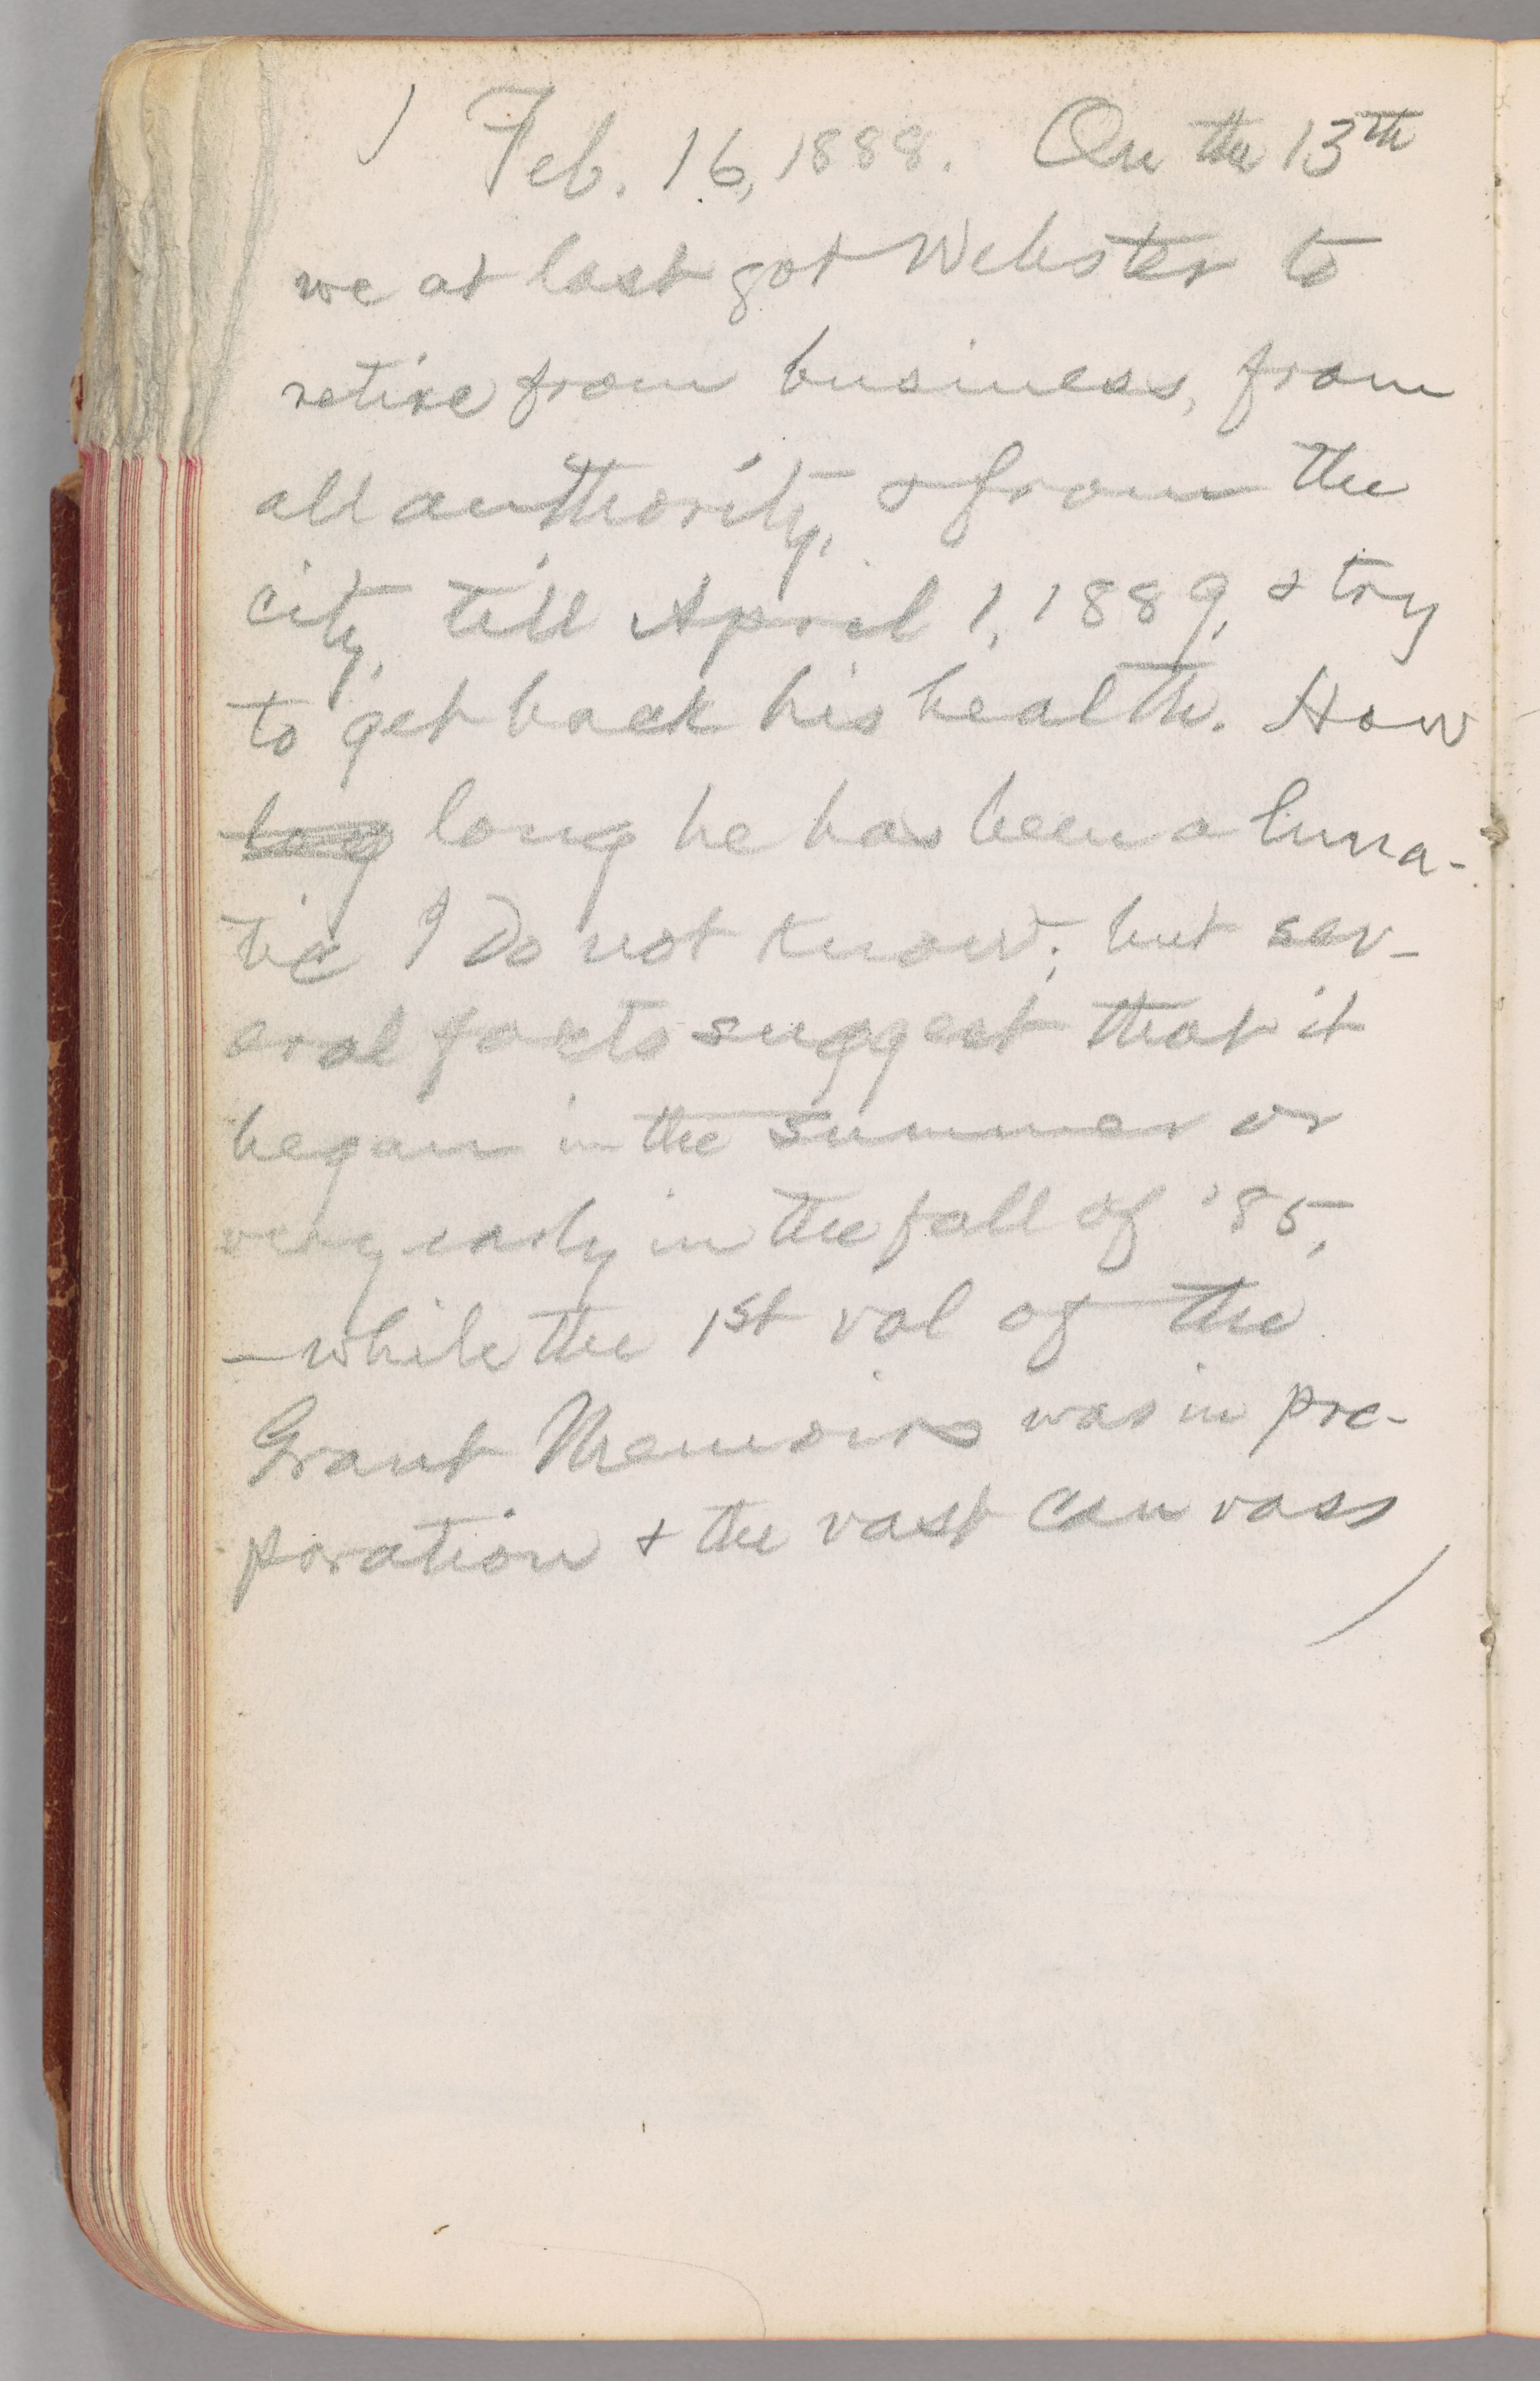 Feb. 16, 1888. On the 13th
we at last got Webster to
retire from business, from
all authority, & from the
city, till April 1, 1889, & try
to get back his health. How
long he has been a luna-
tic I do not know; but sev-
eral facts suggest that it
began in the summer or
very early in the fall of '85,
—while the 1st vol of the
Grant Memoirs was in pre-
paration & the vast canvass